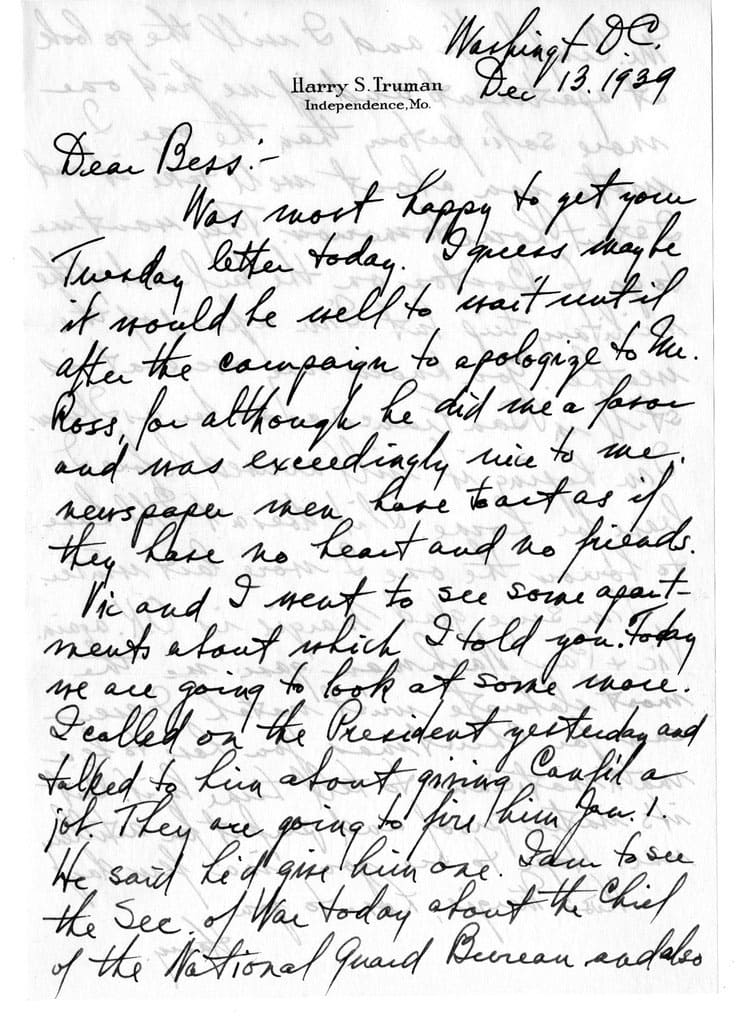 Washingt D.C.
Dec 13. 1939
Harry S. Truman
Independence, Mo.
Dear Bess:-
Was most happy to get your
Tuesday letter today. I guess maybe
it would be well to wait until
after the campaign to apologize to Mr.
Ross, for although he did me a favor
and was exceedingly nice to me,
newspaper men have to act as if
they have no heart and no friends.
Vic and I went to see some apart-
ments about which I told you. Today
we are going to look at some more.
I called on the President yesterday and
talked to him about giving Canfil a
job. They are going to fire him Jan. 1.
He said he'd give him one. I am to see
the Sec. of War today about the Chief
of the National Guard Bureau and also